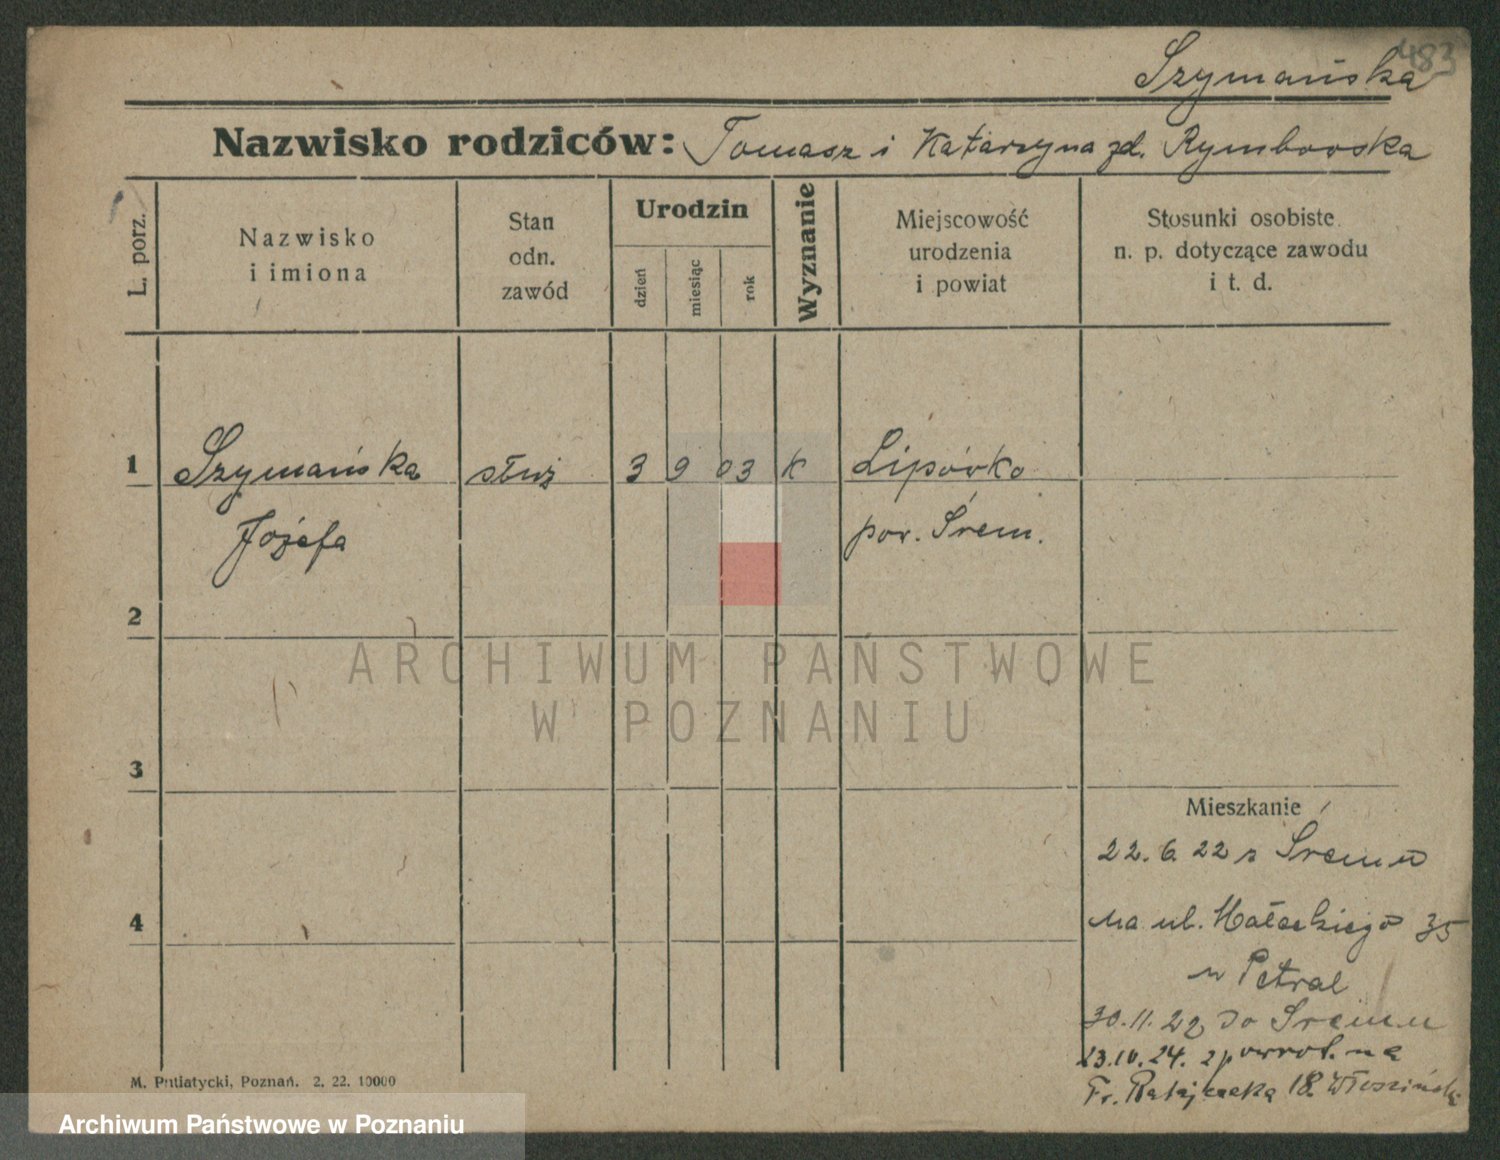 483
Szymańska
Nazwisko rodziców: Tomasz i Katarzyna zd. Rymbowska
L. porz.
Nazwisko
i imiona
Stan
odn.
zawód
Urodzin
dzień
miesiąc
rok
Wyznanie
Miejscowość
urodzenia
i powiat
Stosunki osobiste
n. p. dotyczące zawodu
i t. d.
1 Szymańska służ 3 9 03 K Lipówko
Józefa pow. Śrem.
2
3
4
ARCHIWUM PAŃSTWOWE
W POZNANIU
Mieszkanie
22. 6 22 z Śremu
na ul. Małeckiego 35
u Petral
30. 11. 22 do Śremu
23. 10. 24. z powrot. na
Fr. Ratajczaka 18.
M. Putiatycki, Poznań. 2. 22. 10000
Archiwum Państwowe w Poznaniu